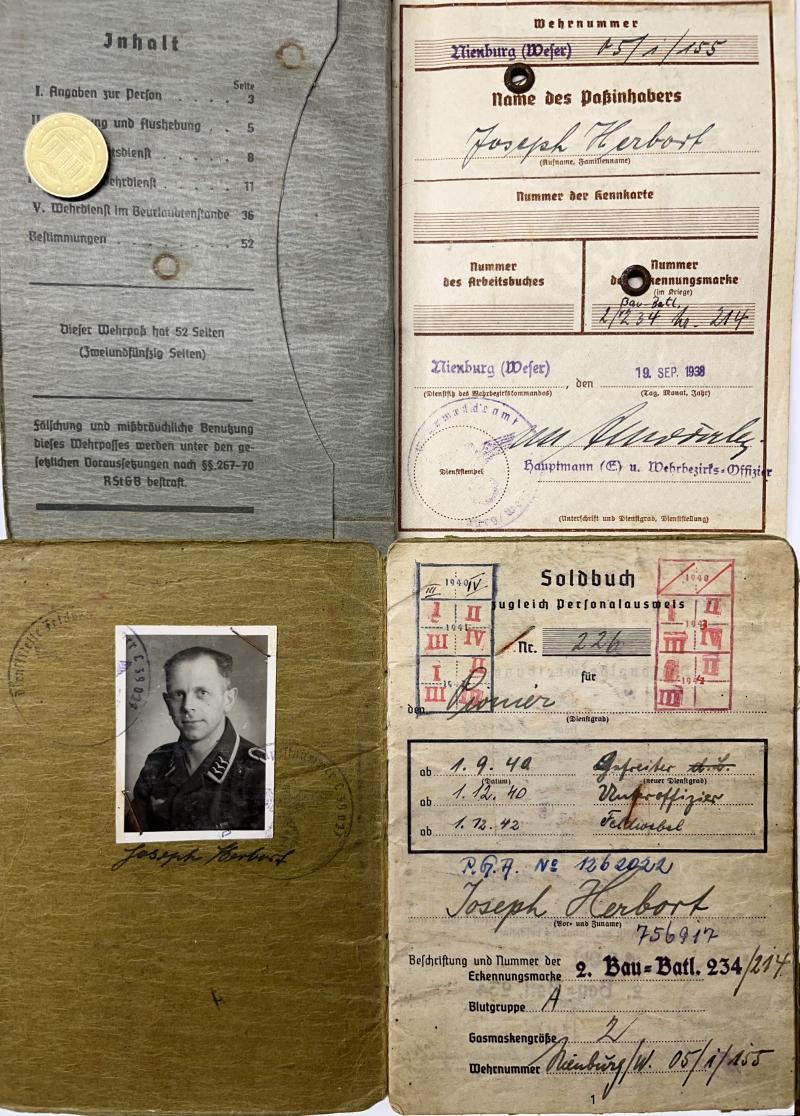 Inhalt
Seite
I. Angaben zur Person . . . . . 3
ung und Aushebung . . . 5
dienst . . . 8
ehrdienst . . . 11
V. Wehrdienst im Beurlaubtenstande 36
Bestimmungen . . . . . 52
Dieser Wehrpaß hat 52 Seiten
(Zweiundfünfzig Seiten)
Fälschung und mißbräuchliche Benutzung
dieses Wehrpasses werden unter den ge-
setzlichen Voraussetzungen nach §§.267-70
RStGB bestraft.
Wehrnummer
Nienburg (Weser) 05/1/155
Name des Paßinhabers
Joseph Herbort
(Rufname, Familienname)
Nummer der Kennkarte
Nummer
des Arbeitsbuches
Nummer
der Erkennungsmarke
(im Kriege)
Bau-Batl.
2/234 No. 214
Nienburg (Weser), den 19. SEP. 1938
(Dienstsitz des Wehrbezirkskommandos) (Tag, Monat, Jahr)
Dienststempel
Hauptmann (E) u. Wehrbezirks-Offizier
(Unterschrift und Dienstgrad, Dienststellung)
Joseph Herbort
1940
III IV
I II
1941
III IV
I II
III
Soldbuch
zugleich Personalausweis
Nr. 226
für
den Pionier
(Dienstgrad)
1940
I II
1943
III IV
I II
1944
III
ab 1.9.40 Gefreiter
(Datum) (neuer Dienstgrad)
ab 1.12.40 Unteroffizier
ab 1.12.42 Feldwebel
P.G.A. No 1262022
Joseph Herbort
(Vor- und Zuname)
756917
Beschriftung und Nummer der
Erkennungsmarke 2. Bau=Batl. 234/214
Blutgruppe A
Gasmaskengröße 2
Wehrnummer Nienburg/W. 05/1/155
1